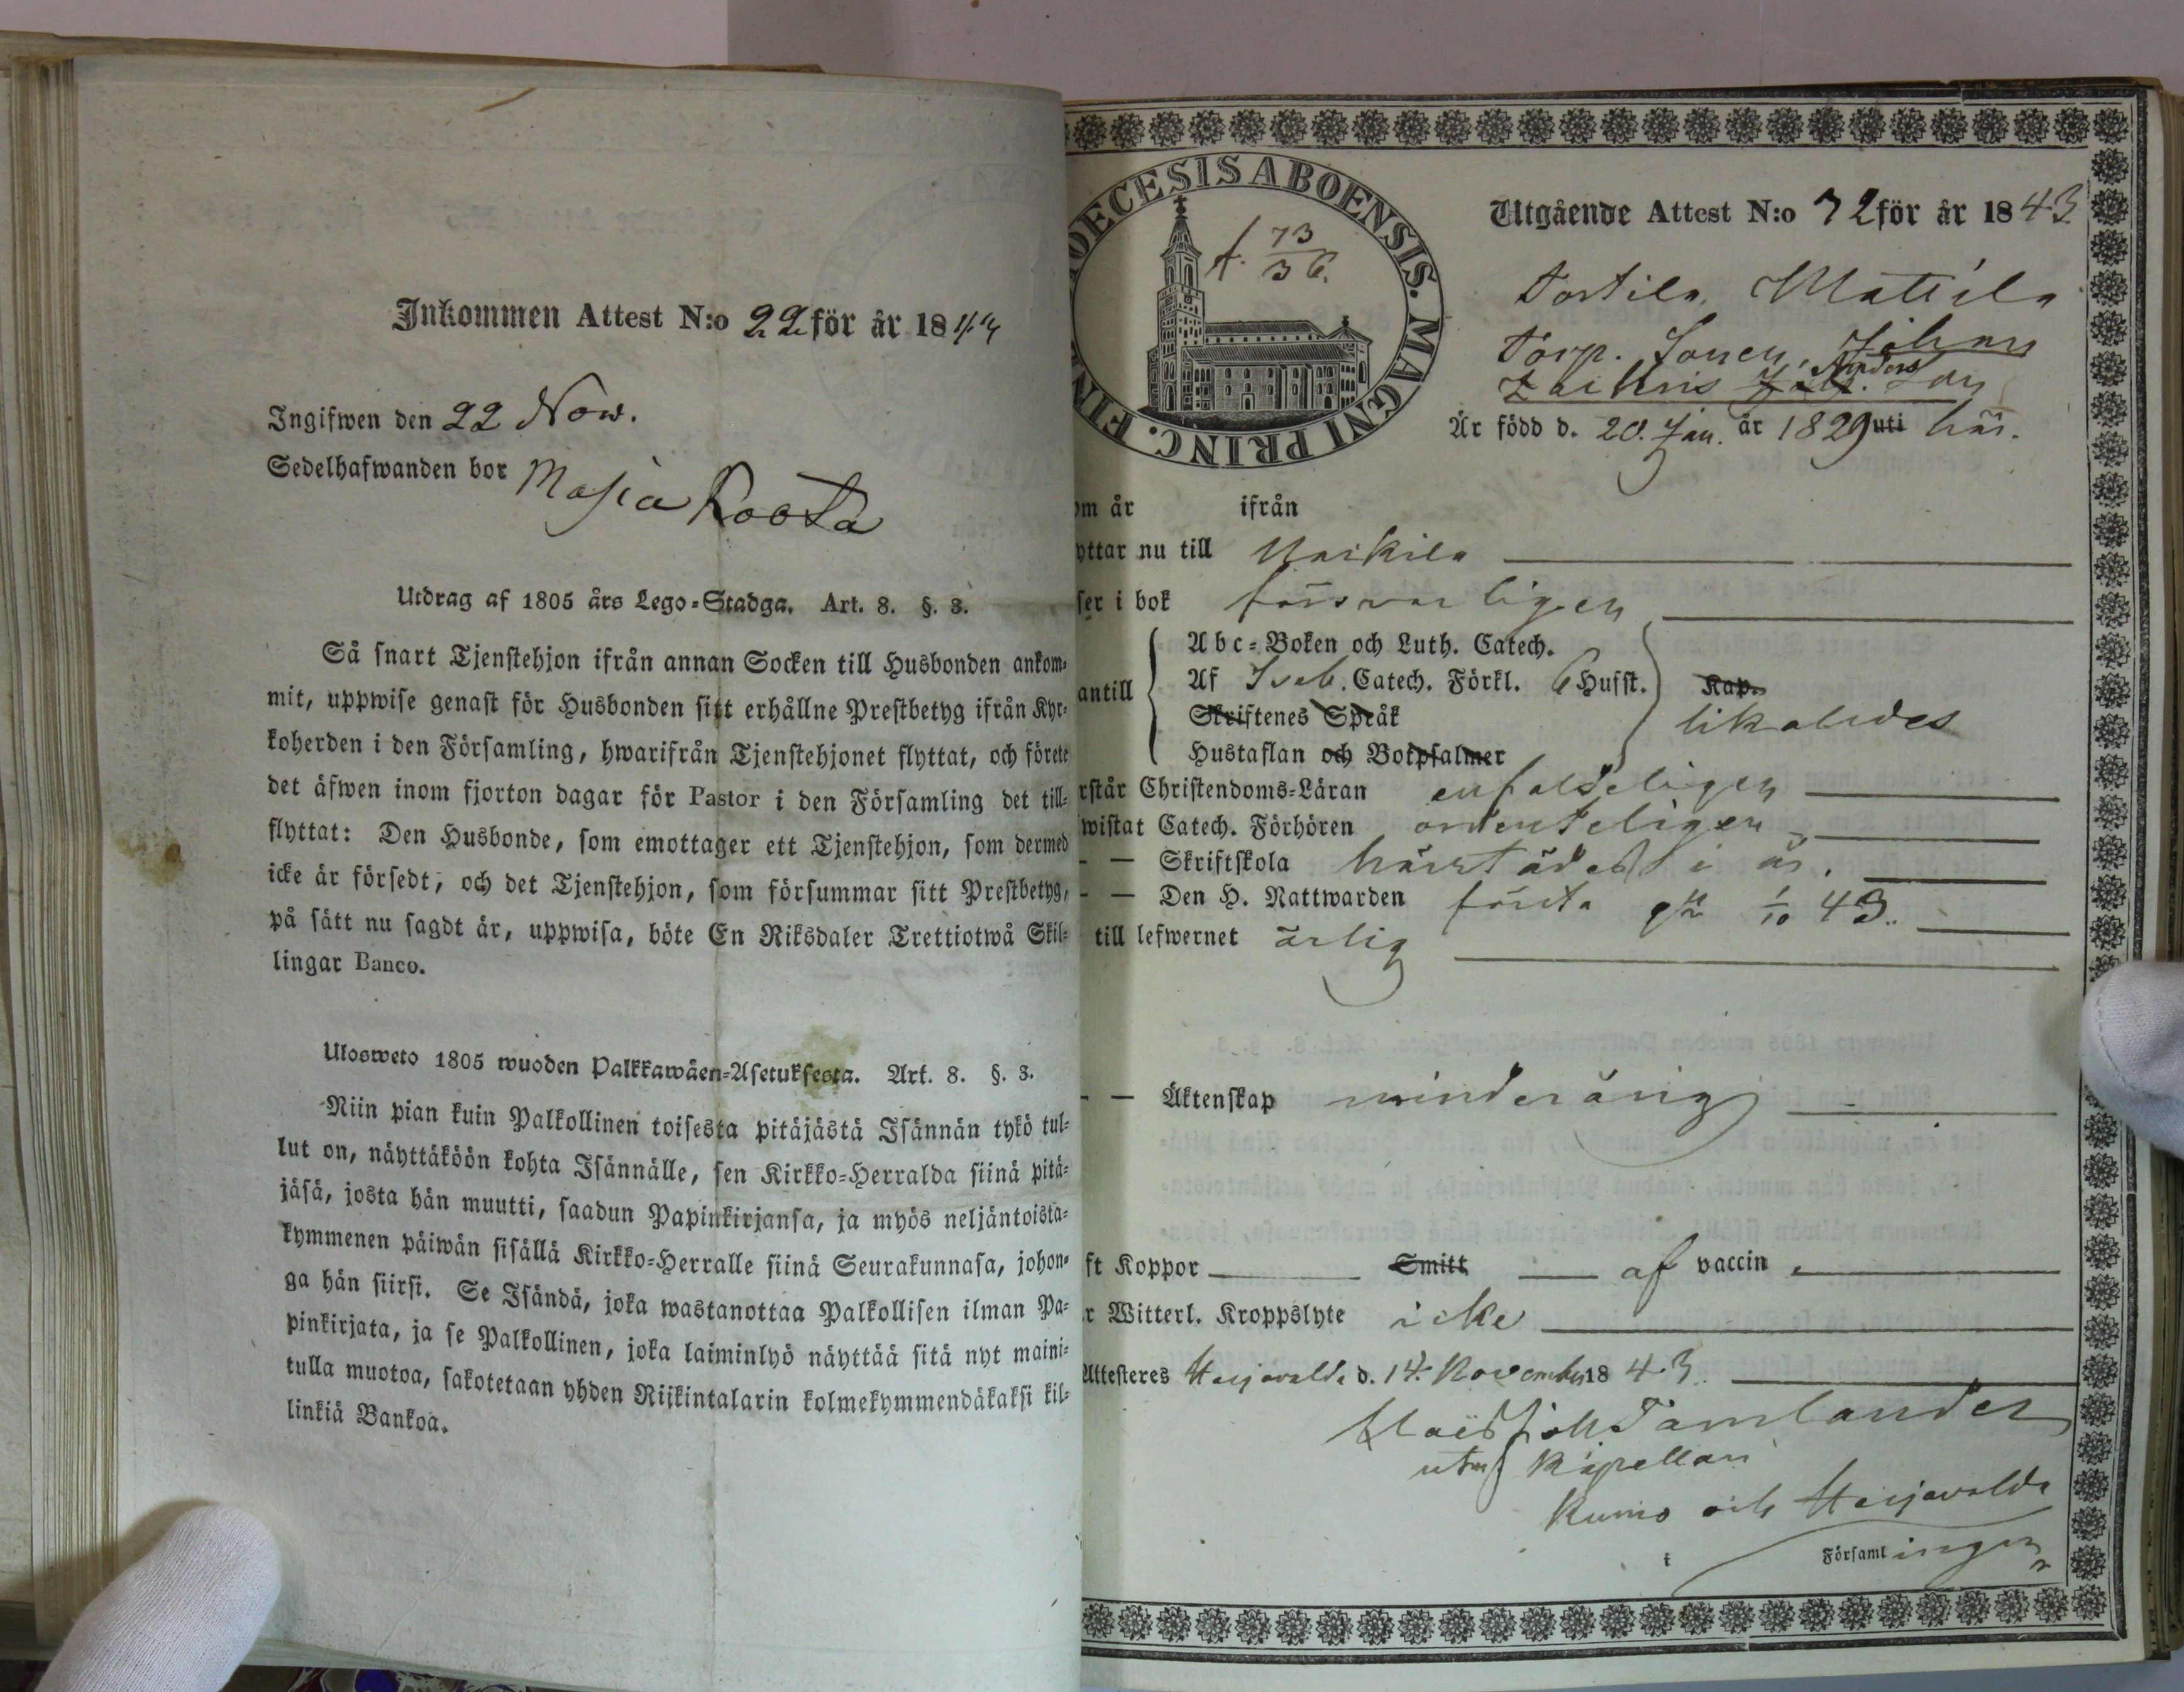 Inkommen Attest N:o 22 för år 1844
Ingifwen den 22 Now.
Sedelhafwanden bor Maria Roota
Utdrag af 1805 års Lego-Stadga. Art. 8. §. 3.
Så snart Tjenstehjon ifrån annan Socken till Husbonden ankom-
mit, uppwise genast för Husbonden sitt erhållne Prestbetyg ifrån Kyr-
koherden i den Församling, hwarifrån Tjenstehjonet flyttat, och förete
det äfwen inom fjorton dagar för Pastor i den Församling det till-
flyttat: Den Husbonde, som emottager ett Tjenstehjon, som dermed
icke är försedt, och det Tjenstehjon, som försummar sitt Prestbetyg,
på sätt nu sagdt är, uppwisa, böte En Riksdaler Trettiotwå Skil-
lingar Banco.
Ulosweto 1805 wuoden Palkkawäen-Asetuksesta. Art. 8. §. 3.
Niin pian kuin Palkollinen toisesta pitäjästä Isännän tykö tul-
lut on, näyttäköön kohta Isännälle, sen Kirkko-Herralda siinä pitä-
jäsä, josta hän muutti, saadun Papinkirjansa, ja myös neljäntoista-
kymmenen päiwän sisällä Kirkko-Herralle siinä Seurakunnasa, johon-
ga hän siirsi. Se Isändä, joka wastanottaa Palkollisen ilman Pa-
pinkirjata, ja se Palkollinen, joka laiminlyö näyttää sitä nyt maini-
tulla muotoa, sakotetaan yhden Riikintalarin kolmekymmendäkaksi kil-
linkiä Bankoa.
DIOECESIS ABOENSIS. MAGNI PRINC. FIN
f. 73
36.
Utgående Attest N:o 72 för år 1843
Torttila Mattila
Torp. Sonen, Johan
Anders son
Är född d. 20. Jan. år 1829 uti här.
om år ifrån
yttar nu till
ser i bok försvarligen
antill
Abc-Boken och Luth. Catech.
Af Sveb. Catech. Förkl. 6 Husst. Kap.
Skriftenes Språk likaledes
Hustaflan och Botpsalmer
rstår Christendoms-Läran enfaldeligen
wistat Catech. Förhören ordenteligen
— — Skriftskola härstädes i år.
— — Den H. Nattwarden första gn 1/10 43.
till lefwernet ärlig
— — Äktenskap minderårig
ft Koppor Smitt af vaccin
r Witterl. Kroppslyte icke
Attesteres Harjavalda d. 14. November 1843.
Tamlander
Kapellan
Kumo och Harjavalda
i Församlingen